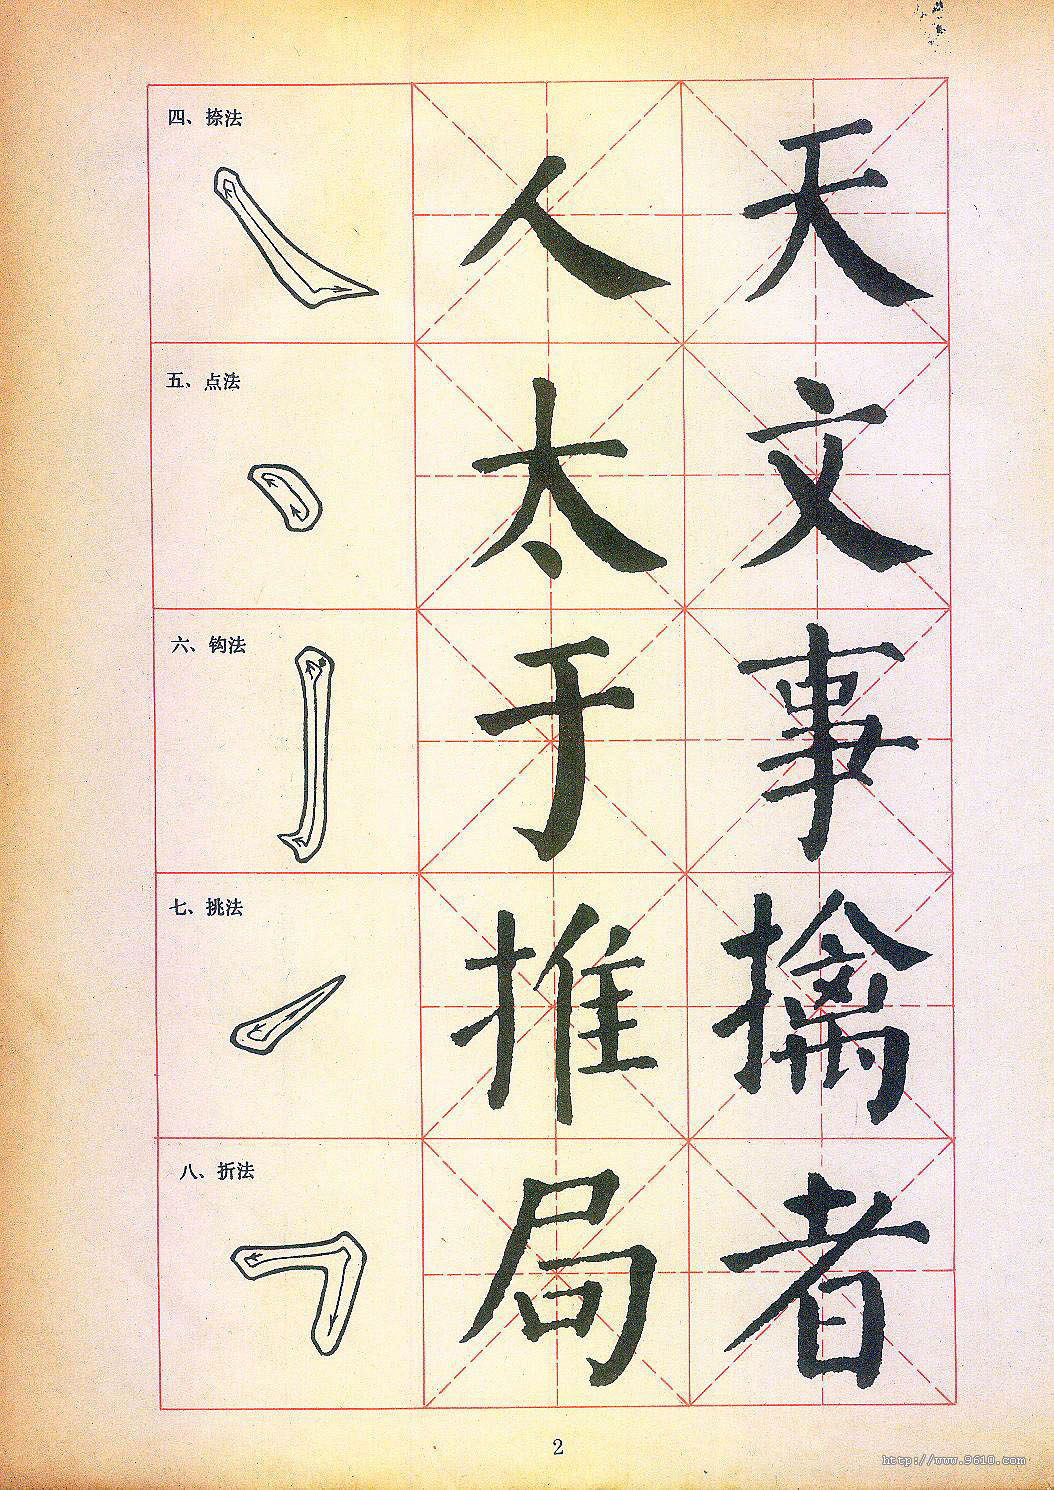 四、捺法
人天
五、点法
太文
六、钩法
于事
七、挑法
推擒
八、折法
局者
2
http://www.9610.com